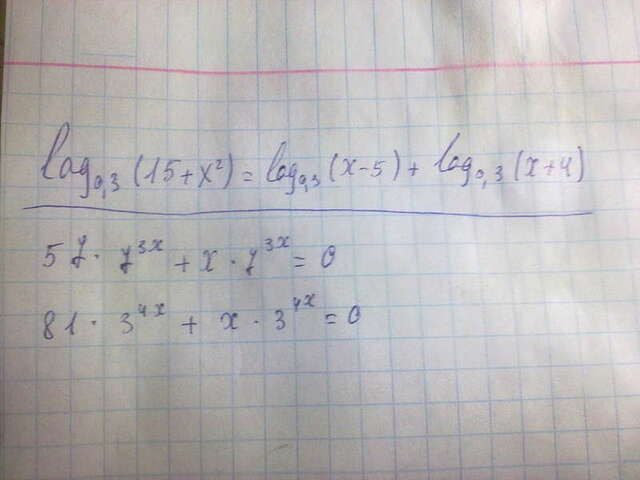 log₀,₃(15+x²)=log₀,₃(x-5)+log₀,₃(x+4)
57·7³ˣ+x·7³ˣ=0
81·3⁴ˣ+x·3⁴ˣ=0